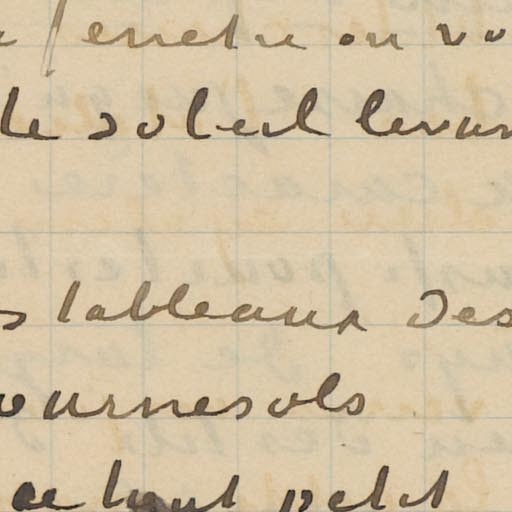 fenetre on vo
le soleil levan
s tableaux des
ournesols
ce tout petit